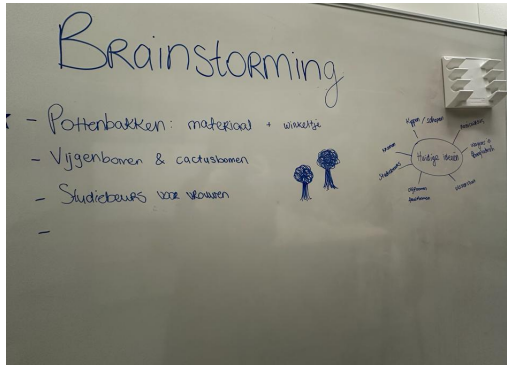 Brainstorming
- Pottenbakken: materiaal + winkeltje
- Vijgenbomen & cactusbomen
- Studiebeurs voor vrouwen
-
Kippen / schapen
Huidige ideeën
Studiebeurs